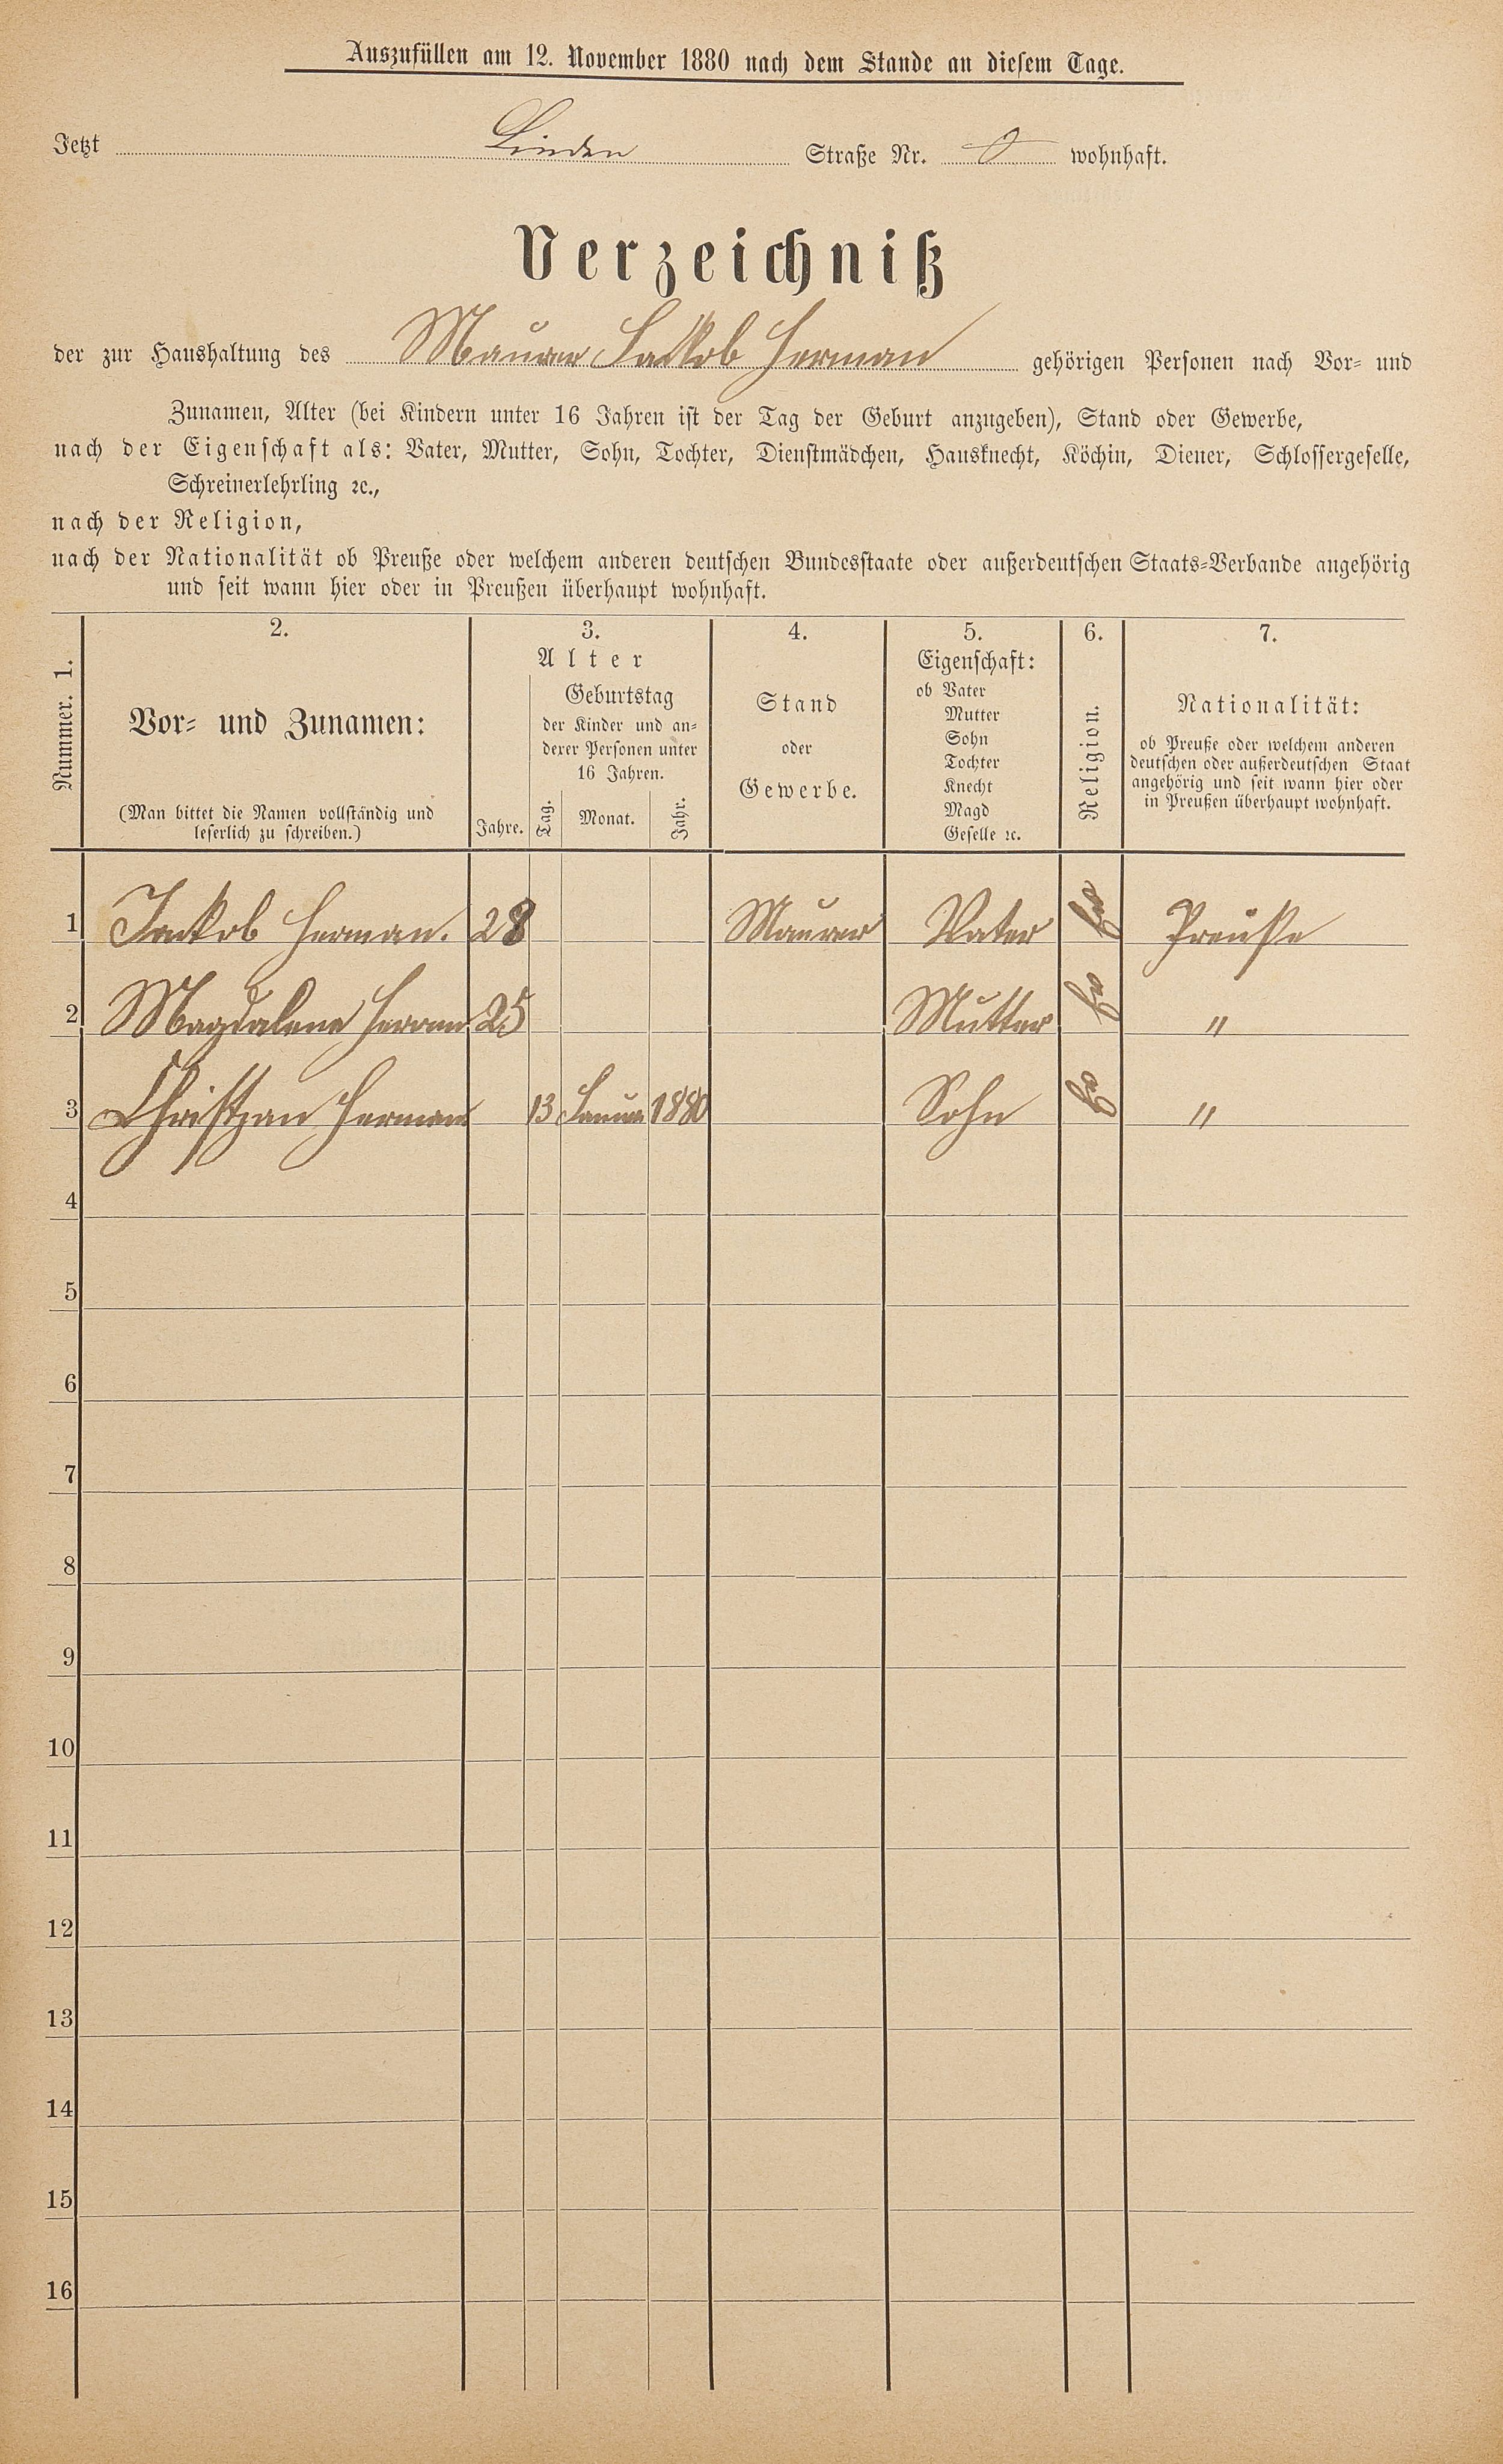 Auszufüllen am 12. November 1880 nach dem Stande an diesem Tage.
Jetzt Linden Straße Nr. wohnhaft.
Verzeichniß
der zur Haushaltung des Maurer Jackob Herman gehörigen Personen nach Vor- und
Zunamen, Alter (bei Kindern unter 16 Jahren ist der Tag der Geburt anzugeben), Stand oder Gewerbe,
nach der Eigenschaft als: Vater, Mutter, Sohn, Tochter, Dienstmädchen, Hausknecht, Köchin, Diener, Schlossergeselle,
Schreinerlehrling ꝛc.,
nach der Religion,
nach der Nationalität ob Preuße oder welchem anderen deutschen Bundesstaate oder außerdeutschen Staats-Verbande angehörig
und seit wann hier oder in Preußen überhaupt wohnhaft.
Nummer. 1.
2.
Vor- und Zunamen:
(Man bittet die Namen vollständig und
leserlich zu schreiben.)
3.
Alter
Jahre.
Geburtstag
der Kinder und an-
derer Personen unter
16 Jahren.
Tag. Monat. Jahr.
4.
Stand
oder
Gewerbe.
5.
Eigenschaft:
ob Vater
Mutter
Sohn
Tochter
Knecht
Magd
Geselle ꝛc.
6.
Religion.
7.
Nationalität:
ob Preuße oder welchem anderen
deutschen oder außerdeutschen Staat
angehörig und seit wann hier oder
in Preußen überhaupt wohnhaft.
1 Jackob Herman. 28 Maurer Vater Ev Preuße
2 Magdalene Herman 25 Mutter Ev "
3 Christian Herman 13 Januar 1880 Sohn Ev "
4
5
6
7
8
9
10
11
12
13
14
15
16